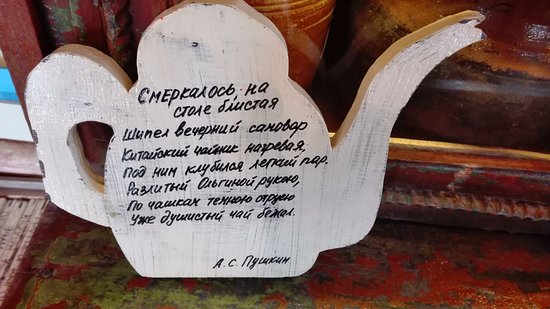 Смеркалось. на
столе блистая
Шипел вечерний самовар
Китайский чайник нагревая,
Под ним клубился легкий пар.
Разлитый Ольгиной рукою,
По чашкам темною струею
Уже душистый чай бежал.
А.С. Пушкин